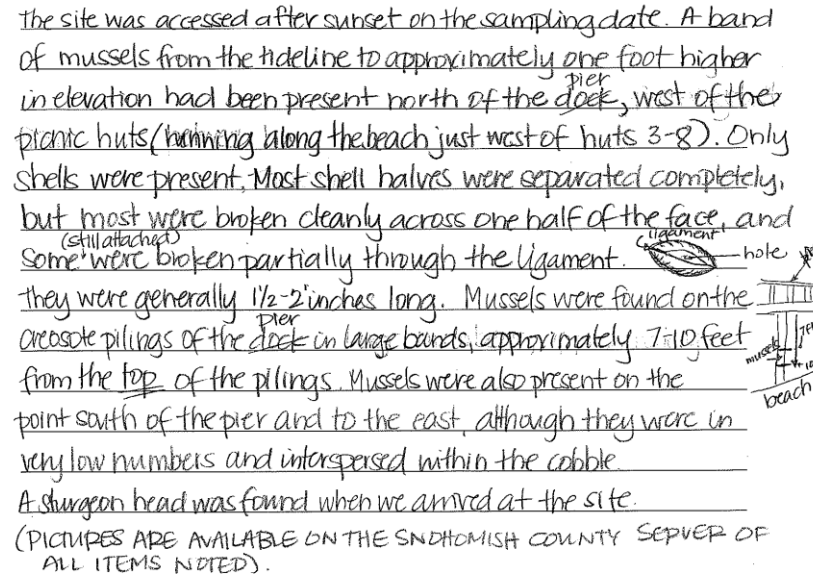 The site was accessed after sunset on the sampling date. A band
of mussels from the tideline to approximately one foot higher
pier
in elevation had been present north of the dock, west of the
picnic huts (running along the beach just west of huts 3-8). Only
shells were present. Most shell halves were separated completely,
but most were broken cleanly across one half of the face, and
(still attached)
some were broken partially through the ligament.
ligament
hole
they were generally 1½-2" inches long. Mussels were found on the
pier
creosote pilings of the dock in large bands, approximately 7-10 feet
from the top of the pilings. Mussels were also present on the
mussels
beach
point south of the pier and to the east, although they were in
very low numbers and interspersed within the cobble
A sturgeon head was found when we arrived at the site.
(PICTURES ARE AVAILABLE ON THE SNOHOMISH COUNTY SERVER OF
ALL ITEMS NOTED).